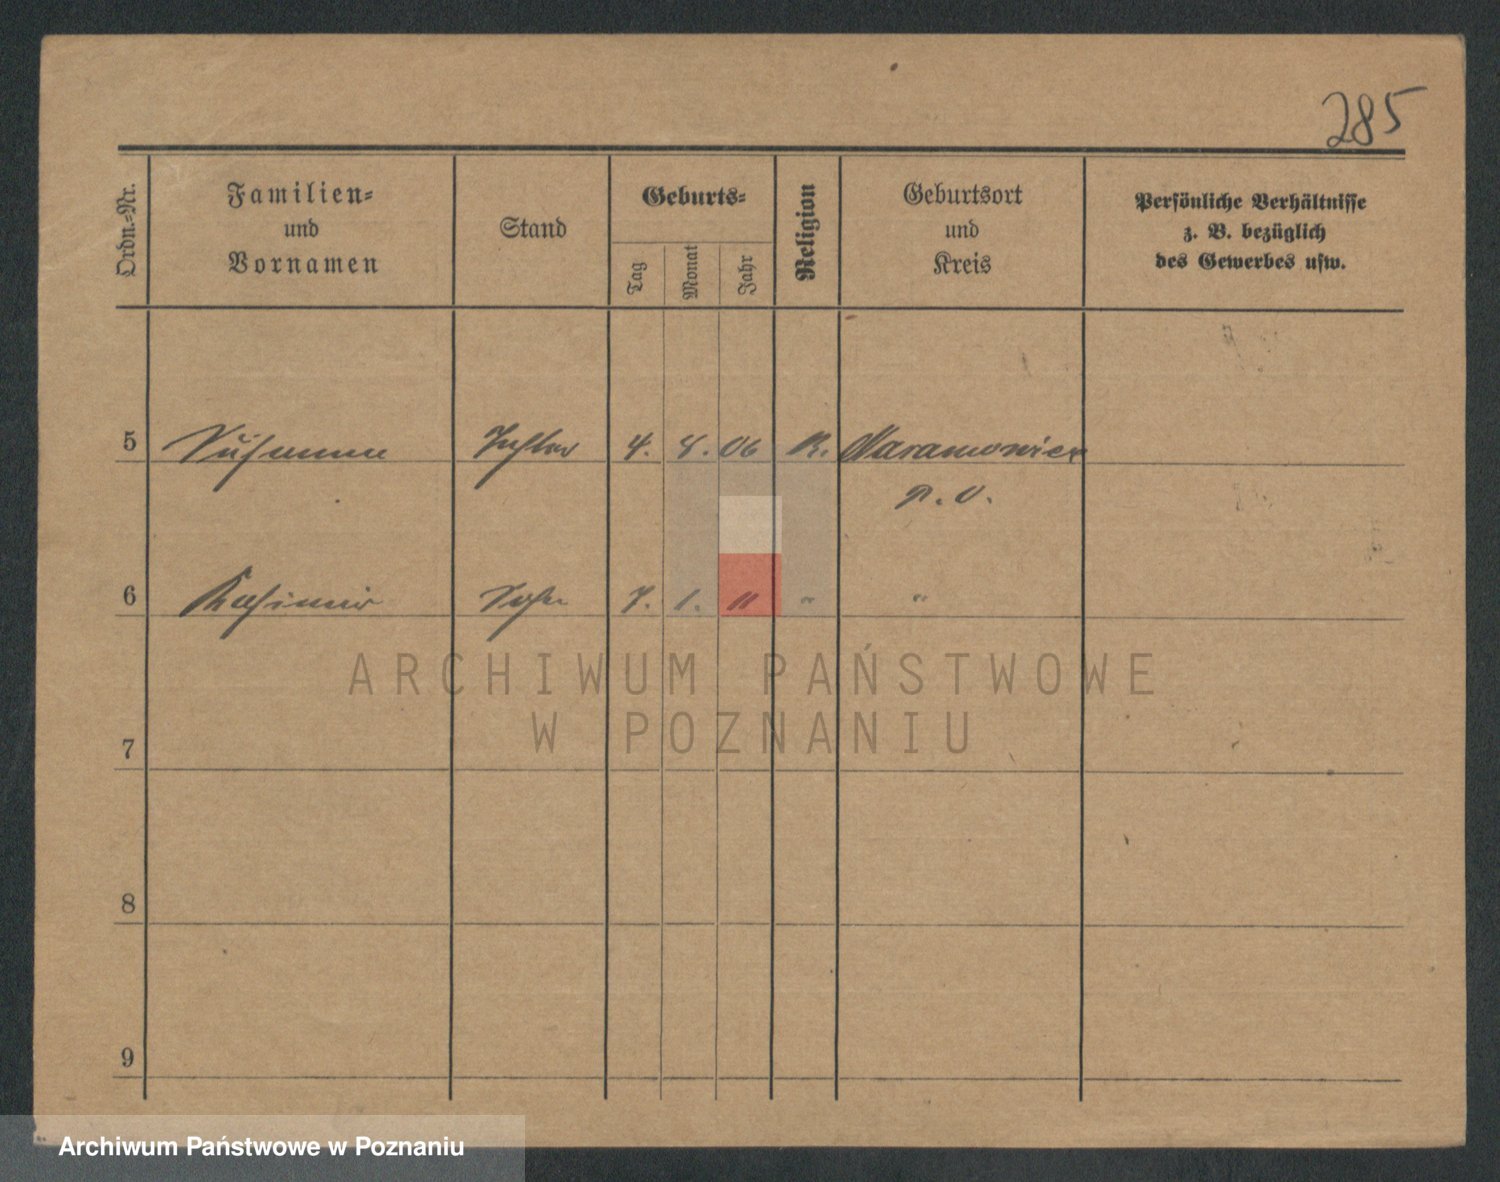 285
Ordn.=Nr.
Familien=
und
Vornamen
Stand
Geburts=
Tag
Monat
Jahr
Religion
Geburtsort
und
Kreis
Persönliche Verhältnisse
z. B. bezüglich
des Gewerbes usw.
5 Tochter 4. 8. 06 K. Naramowice
P. O.
6 Kasimir Sohn 7. 1. 11 " "
7
8
9
ARCHIWUM PAŃSTWOWE
W POZNANIU
Archiwum Państwowe w Poznaniu